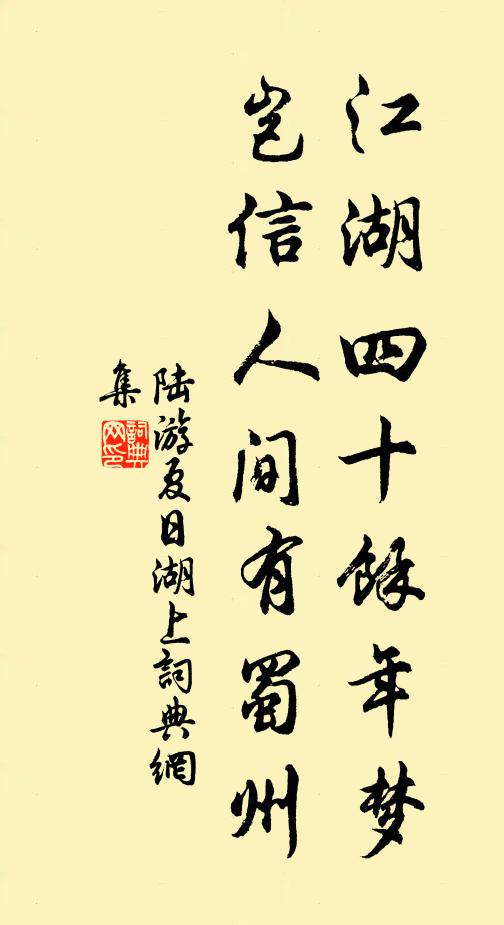 江湖四十餘年梦
岂信人间有蜀州
陆游夏日湖上詞典網
集
詞典网印